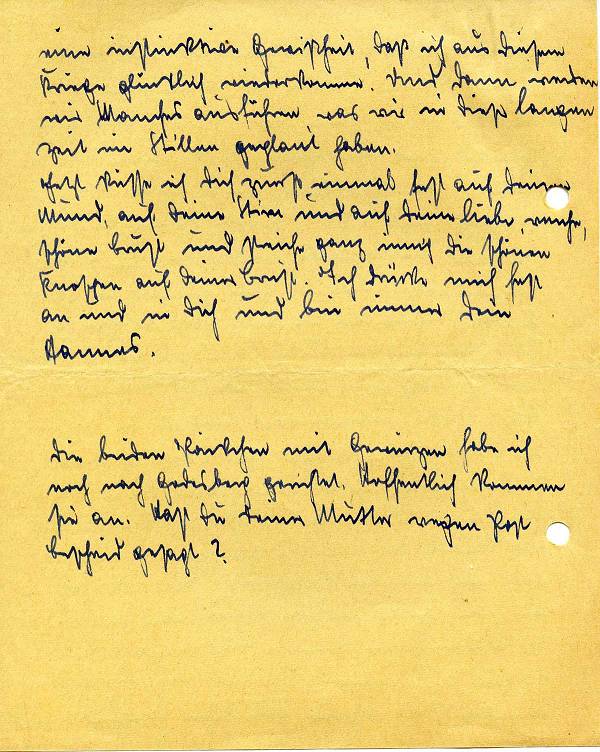 eine instinktive Gewißheit, daß ich aus diesem
Kriege glücklich wiederkomme. Und dann werden
wir Manches ausführen was wir in dieser langen
Zeit im Stillen geplant haben.
Jetzt küsse ich Dich zuerst einmal fest auf Deinen
Mund, auf Deine Stirn und auf Deine liebe, weiche,
schöne Brust und ganz die schönen
Knospen auf Deiner Brust. Ich drücke mich fest
an und in Dich und bin immer Dein
Hannes.
Die beiden Päckchen mit Gewürzen habe ich
noch nach Godesberg gerichtet. Hoffentlich kommen
sie an. Hast Du Deiner Mutter wegen Post
bescheid gesagt?